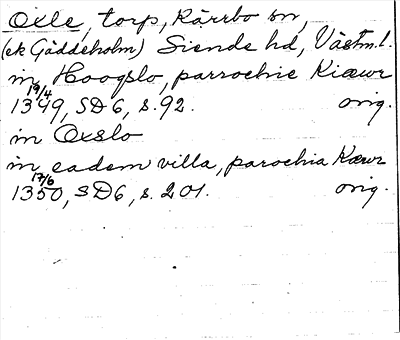 Oxle, torp, Kärrbo sn,
(ek Gäddeholm) Siende hd, Västm.l.
in Hoogslo, parrochie Kiæwr
19/4 1349, SD6, s. 92. orig.
in Oxslo
in eadem villa, parochia Kærwr
17/6 1350, SD6, s. 201. orig.